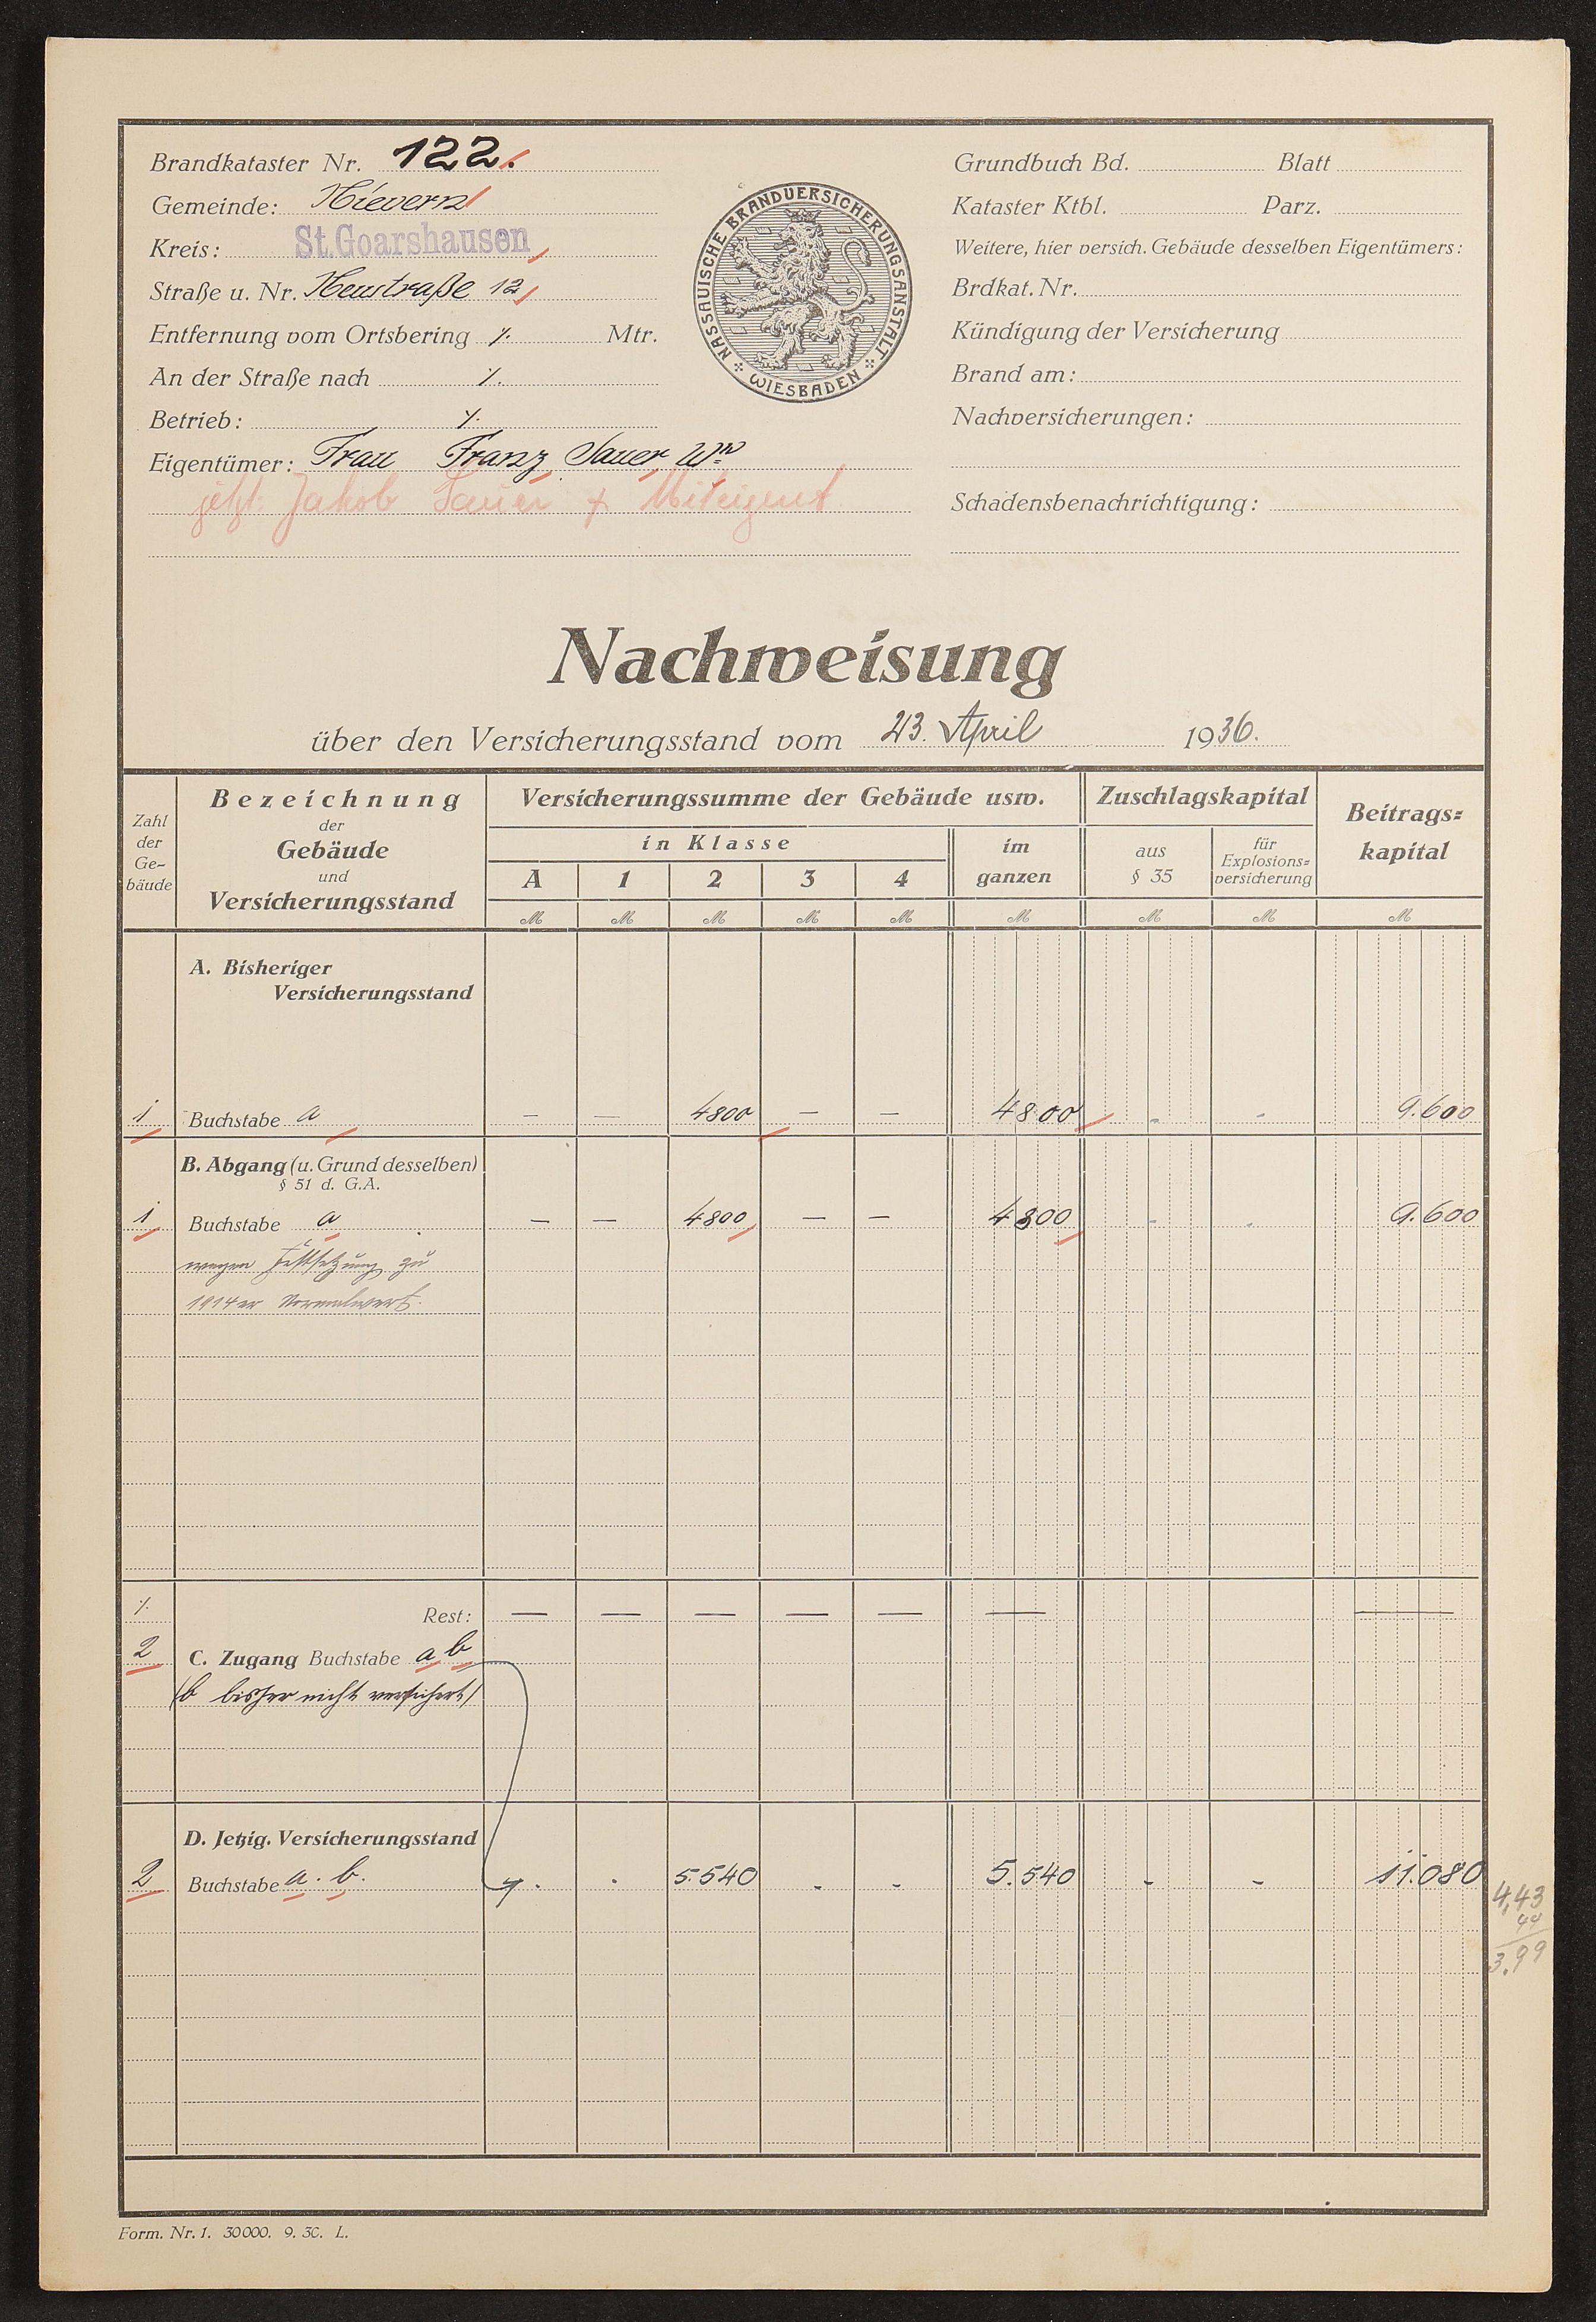 Brandkataster Nr. 122.
Gemeinde: Nievern
Kreis: St. Goarshausen
Straße u. Nr. Neustraße 12
Entfernung vom Ortsbering ⁒ Mtr.
An der Straße nach ⁒
Betrieb: ⁒
Eigentümer: Frau Franz Sauer Ww
jetzt: Jakob Sauer + Miteigent
NASSAUISCHE BRANDVERSICHERUNGSANSTALT
WIESBADEN
Grundbuch Bd. Blatt
Kataster Ktbl. Parz.
Weitere, hier versich. Gebäude desselben Eigentümers:
Brdkat. Nr.
Kündigung der Versicherung
Brand am:
Nachversicherungen:
Schadensbenachrichtigung:
Nachweisung
über den Versicherungsstand vom 23. April 1936.
Zahl der Ge-bäude
Bezeichnung der Gebäude und Versicherungsstand
Versicherungssumme der Gebäude usw.
in Klasse
A 1 2 3 4
im ganzen
Zuschlagskapital
aus § 35
für Explosions=versicherung
Beitrags=kapital
M M M M M M M M M
A. Bisheriger
Versicherungsstand
1 Buchstabe a — — 4800 — — 4800 - - 9.600
B. Abgang (u. Grund desselben)
§ 51 d. G.A.
1 Buchstabe a — — 4800 — — 4800 - - 9.600
wegen Festsetzung zu
1914er Normalwert.
⁒ Rest: — — — — — — —
2 C. Zugang Buchstabe a b
(b bisher nicht versichert)
D. Jetzig. Versicherungsstand
2 Buchstabe a. b. - - 5.540 - - 5.540 - - 11.080
4,43
44
3,99
Form. Nr. 1. 30000. 9. 30. L.